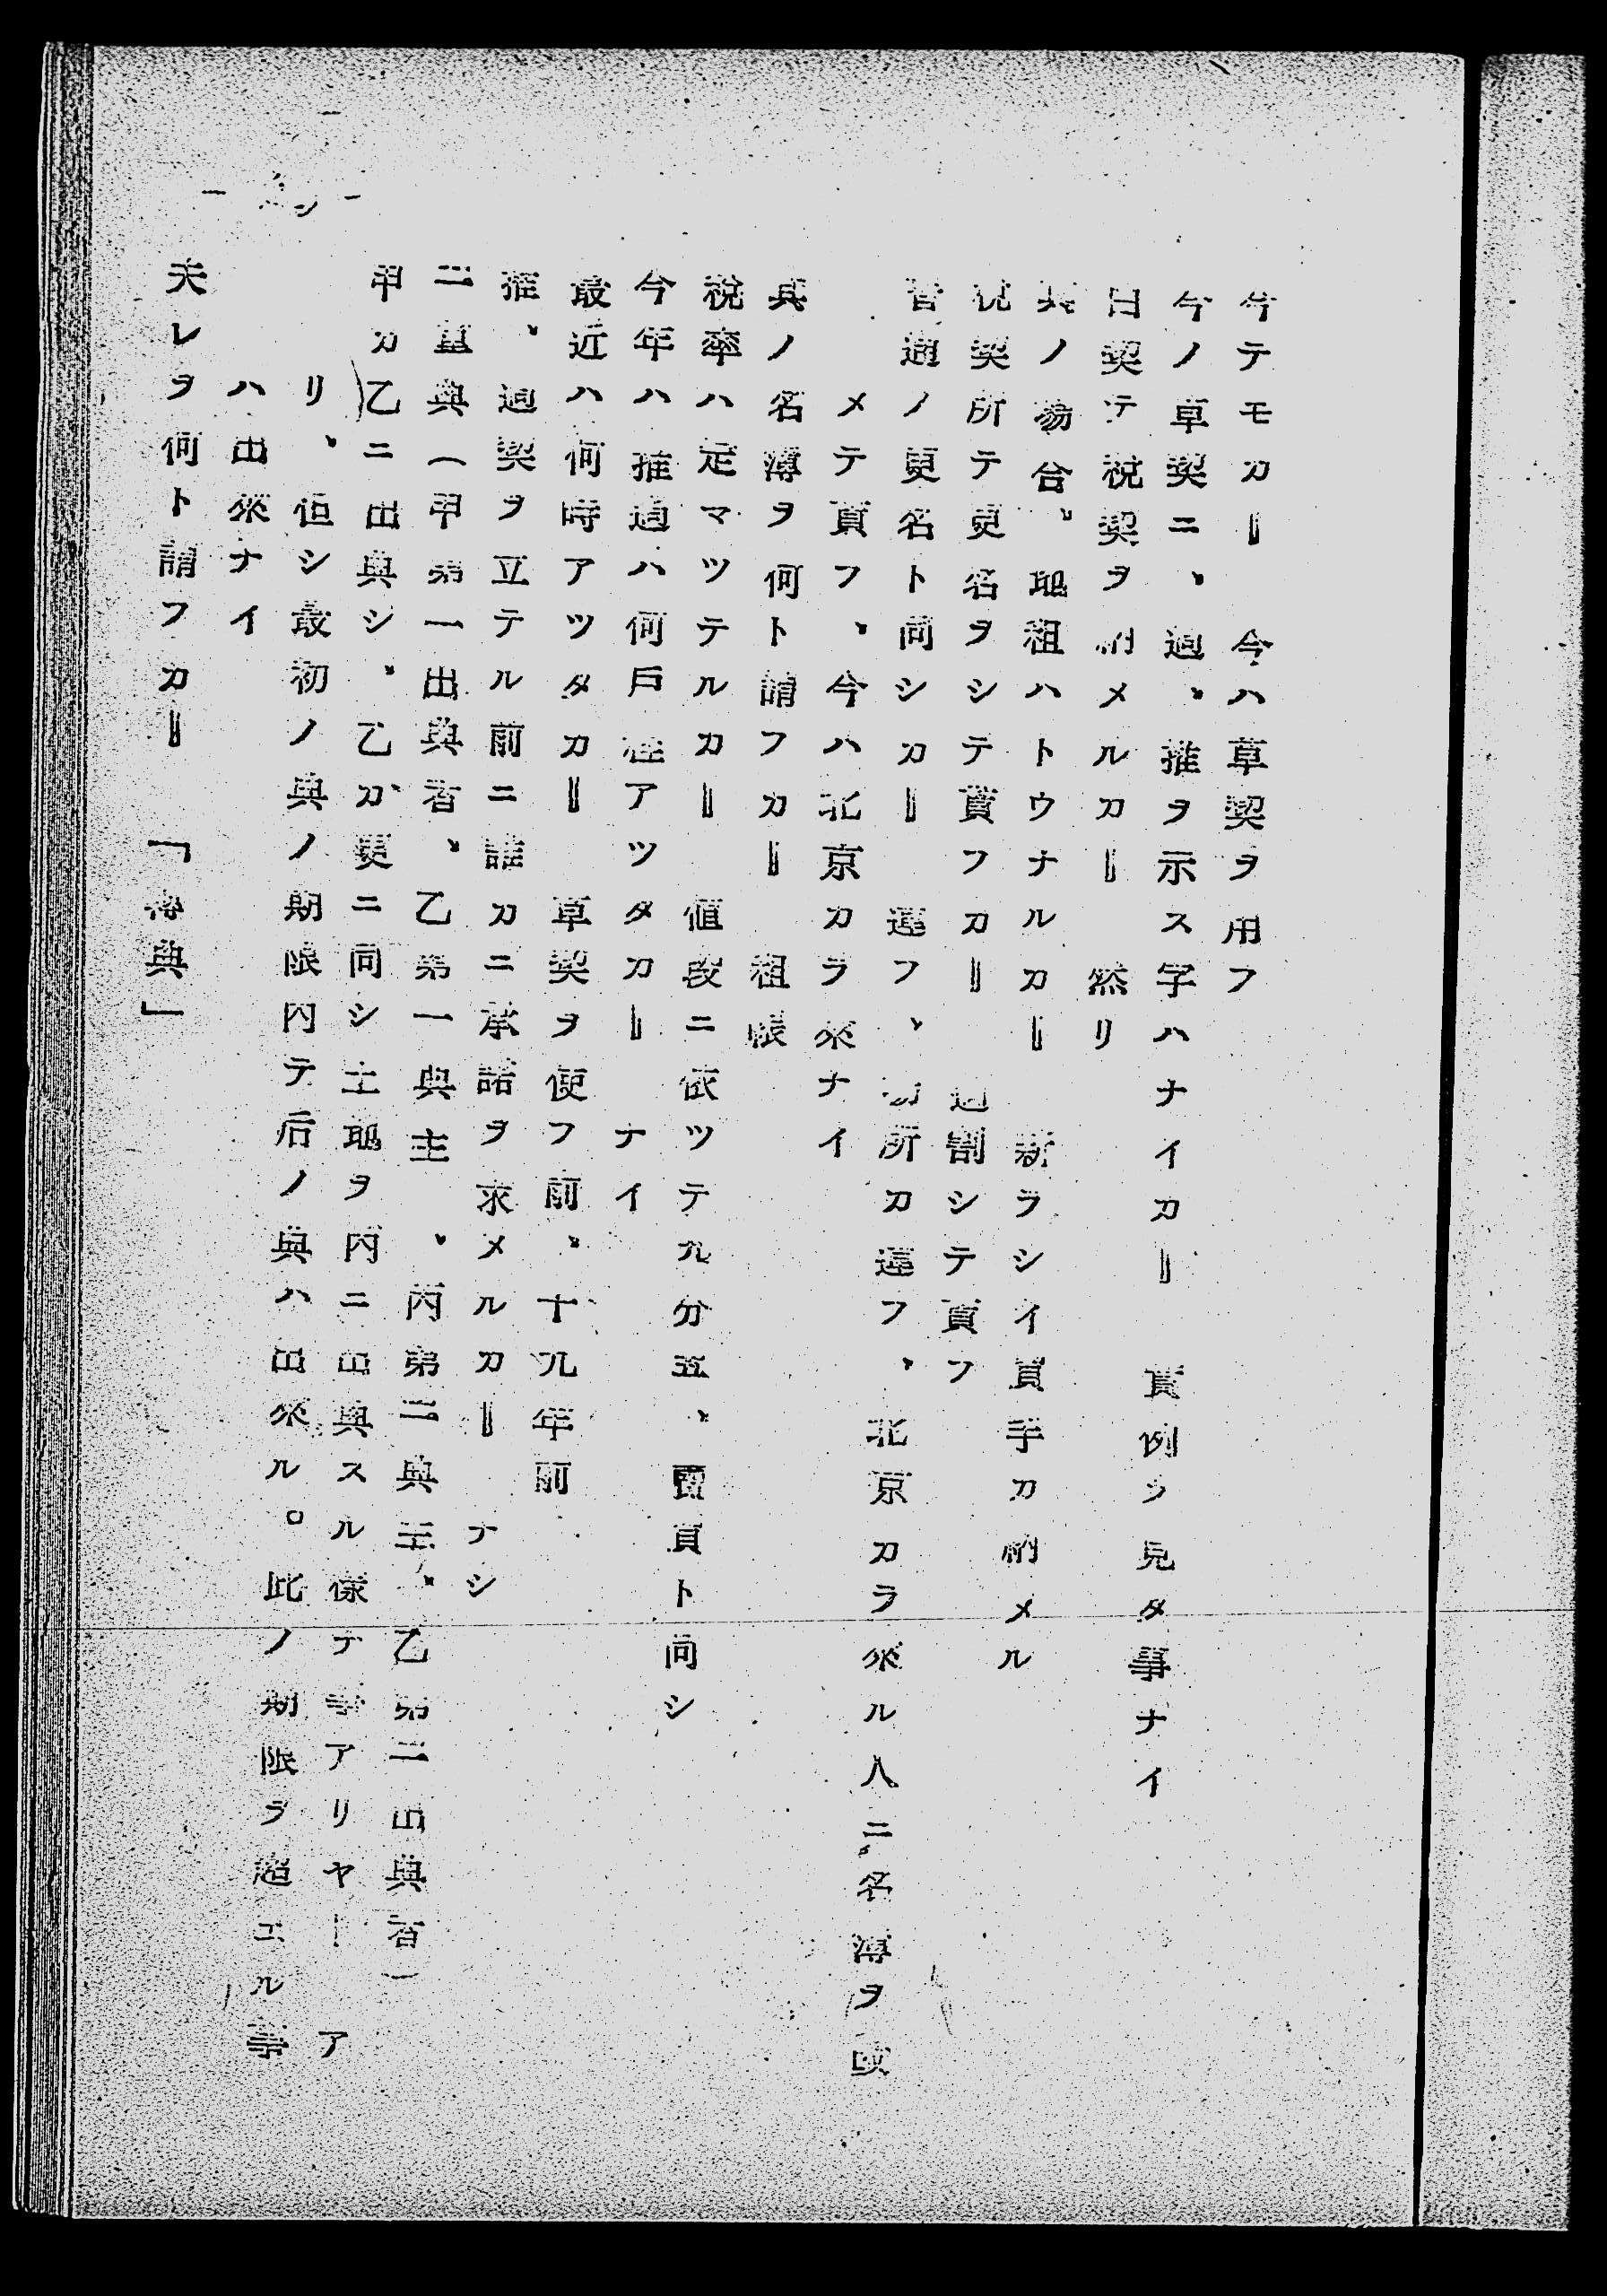 今テモカー‖　今ハ草契ヲ用フ
今ノ草契ニ、過、推ヲ示ス字ハナイカー‖　實例ヲ見タ事ナイ
白契テ税契ヲ納メルカー‖　然リ
其ノ場合、地租ハトウナルカー‖　新ラシイ買手カ納メル
税契所テ更名ヲシテ貰フカー‖　過割シテ貰フ
普通ノ更名ト同シカー‖　違フ、場所カ違フ、北京カラ來ル人ニ名簿ヲ改
メテ貰フ、今ハ北京カラ來ナイ
其ノ名簿ヲ何ト謂フカー‖　租帳
税率ハ定マツテルカー‖　値段ニ依ツテ九分五、賣買ト同シ
今年ハ推過ハ何戸程アツタカー‖　ナイ
最近ハ何時アツタカー‖　草契ヲ使フ前、十九年前
推、過契ヲ立テル前ニ誰カニ承諾ヲ求メルカー‖　ナシ
二重典（甲第一出典者、乙第一典主、丙第二典主、乙第二出典者）
甲カ乙ニ出典シ、乙カ更ニ同シ土地ヲ丙ニ出典スル樣ナ事アリヤー‖　ア
リ、但シ最初ノ典ノ期限内テ后ノ典ハ出來ル。此ノ期限ヲ超エル事
ハ出來ナイ
夫レヲ何ト謂フカー‖　「轉典」